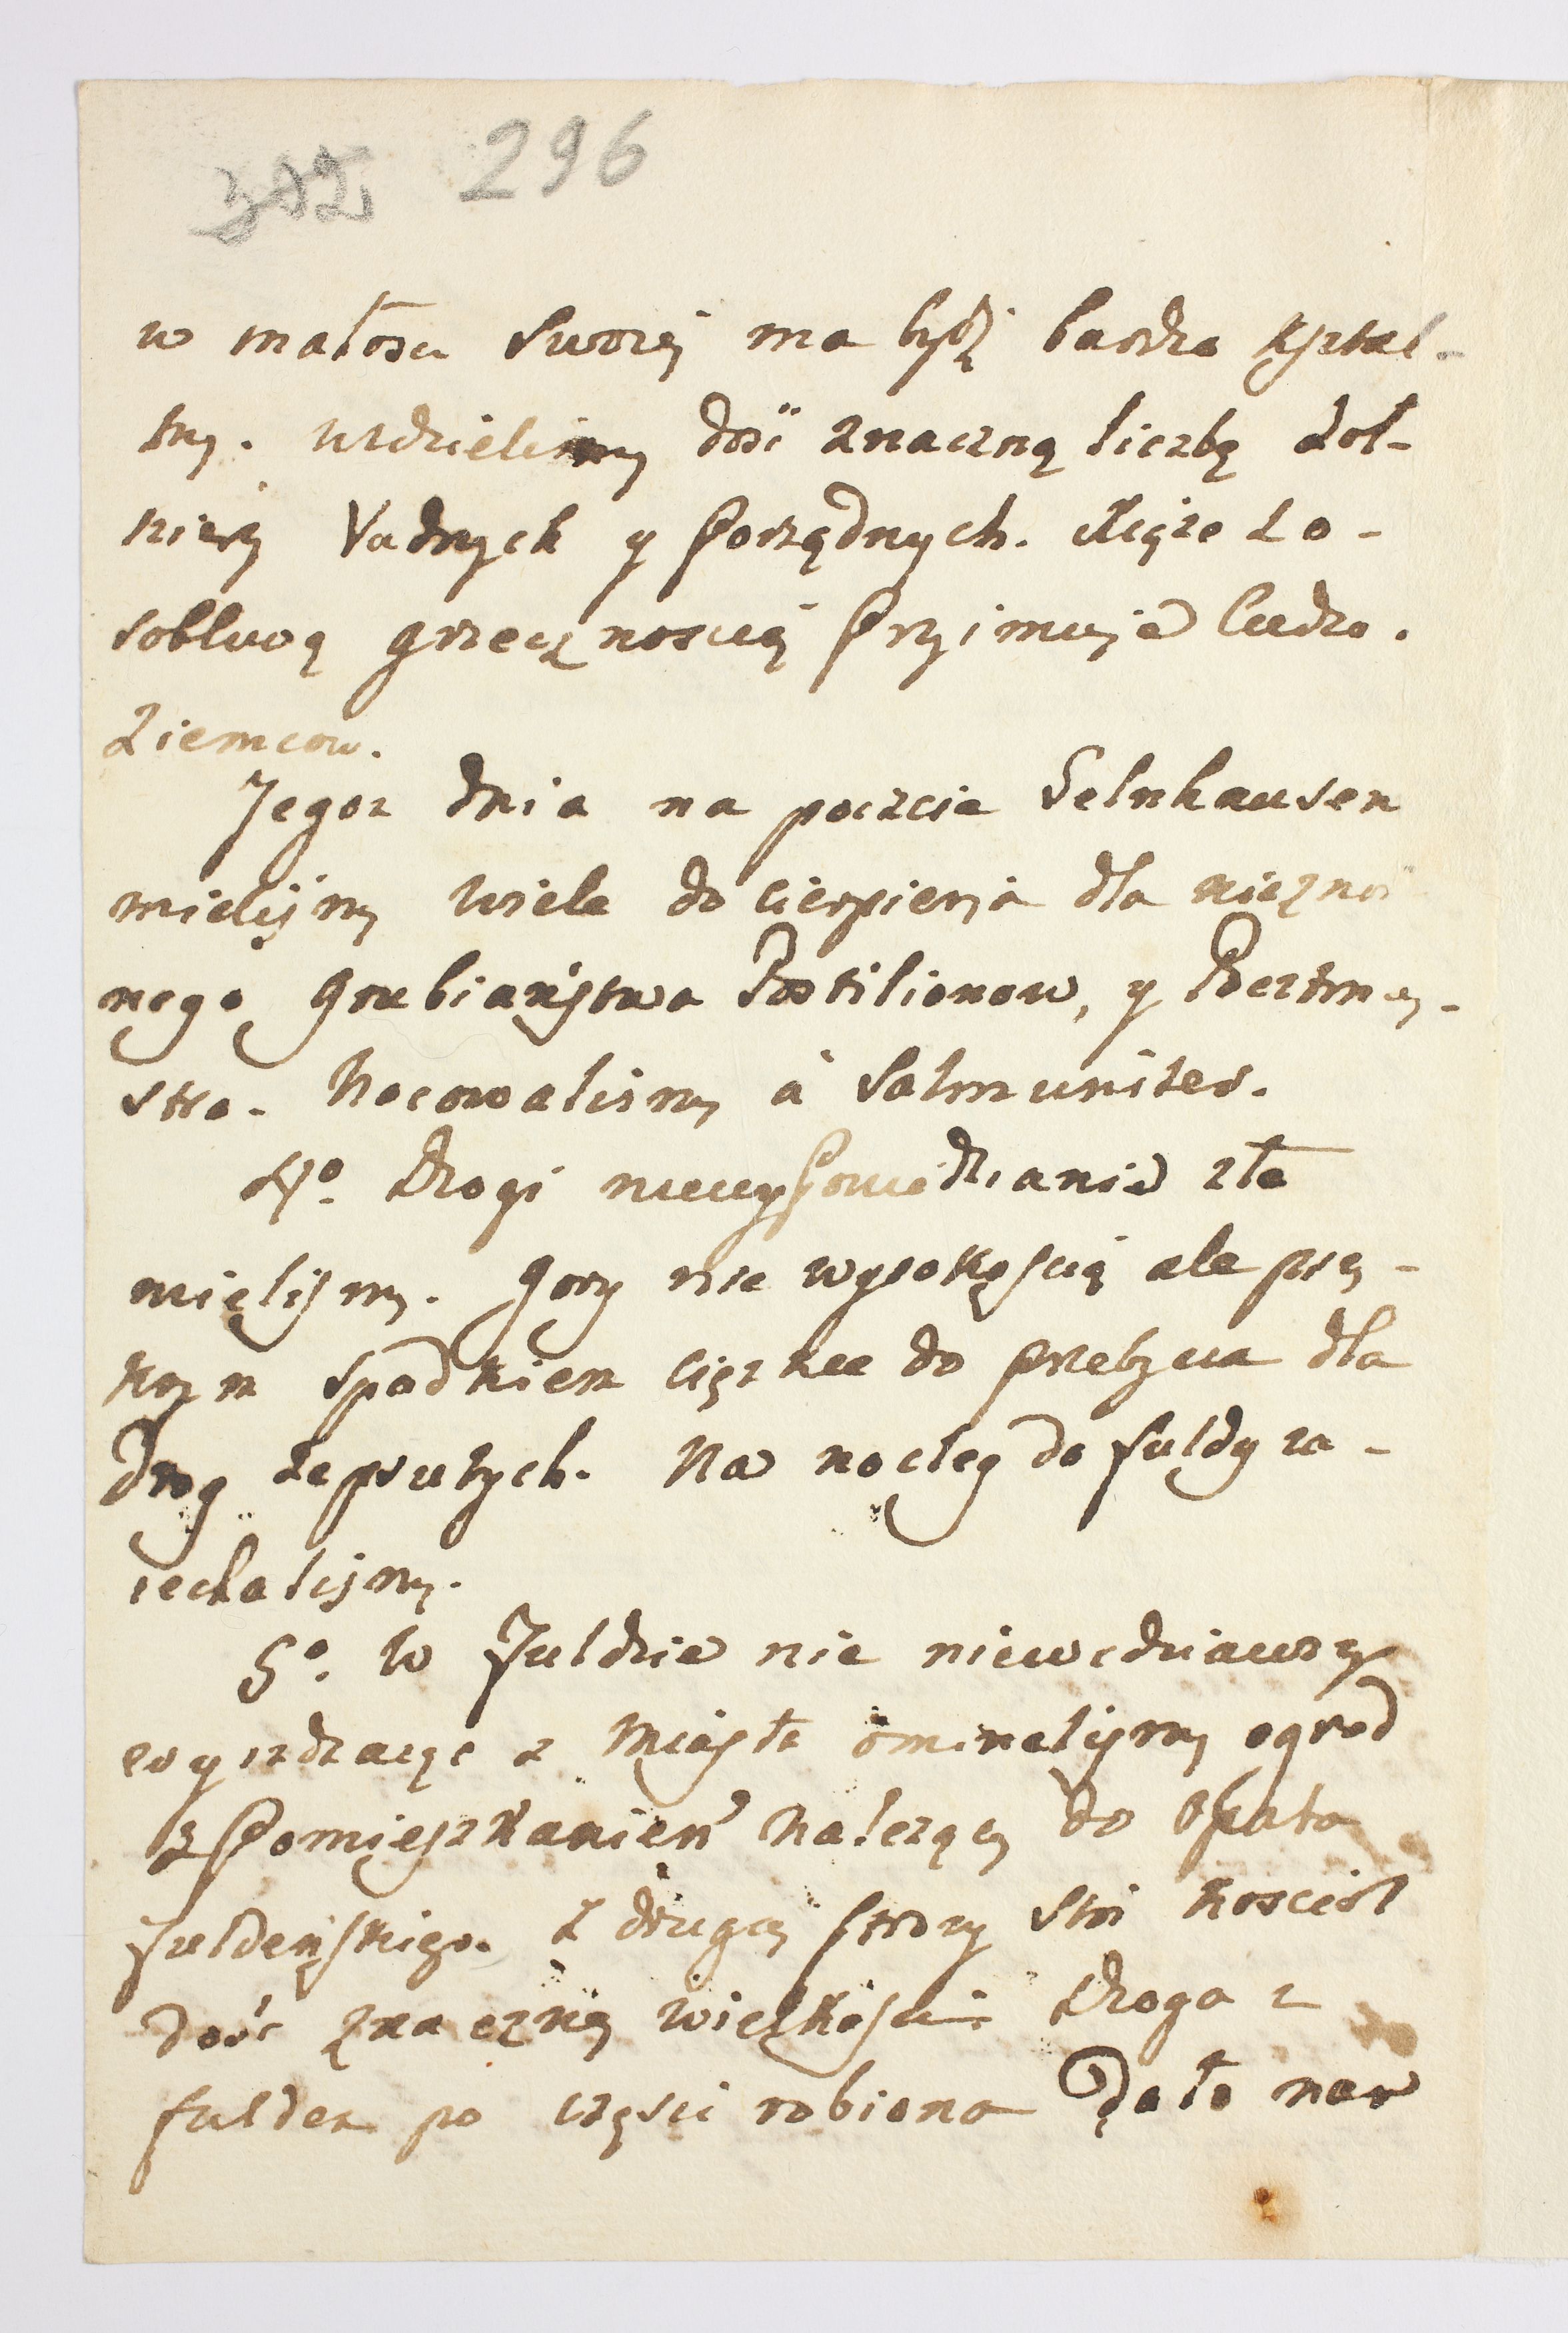 302 296
w małosci swoiej ma bydź bardzo kształ-
tny. widzielismy dosć znaczną liczbę żoł-
nierzy ładnych y Porządnych. Xiąże z o-
sobliwą grzecznoscią Przyimuie Cudzo.
ziemcow.
Tegoz dnia na poczcie Gelnhausen
mielismy wiele do cierpienia dla nieznos
nego Grubiaństwa Postilionow, y Poctmay-
stra. Nocowalismy à Salmunster.
4°. Drogi niewyPowiedzianie złe
mielismy. Gory nie wysokoscią ale prę-
kim spadkiem cięzkie do przebycia dla
Drog zepsutych. Na nocleg do fuldy za-
iechalismy.
5°. W Fuldzie nic niewidziawszy
wyiezdzaiąc z Miasta ominelismy ogrod
z Pomieszkaniem należący do opata
fuldeńskiego. Z drugiey strony stoi kosciół
dosć znaczney wielkosci. Droga z
fulden po częsci robiona Dała nam